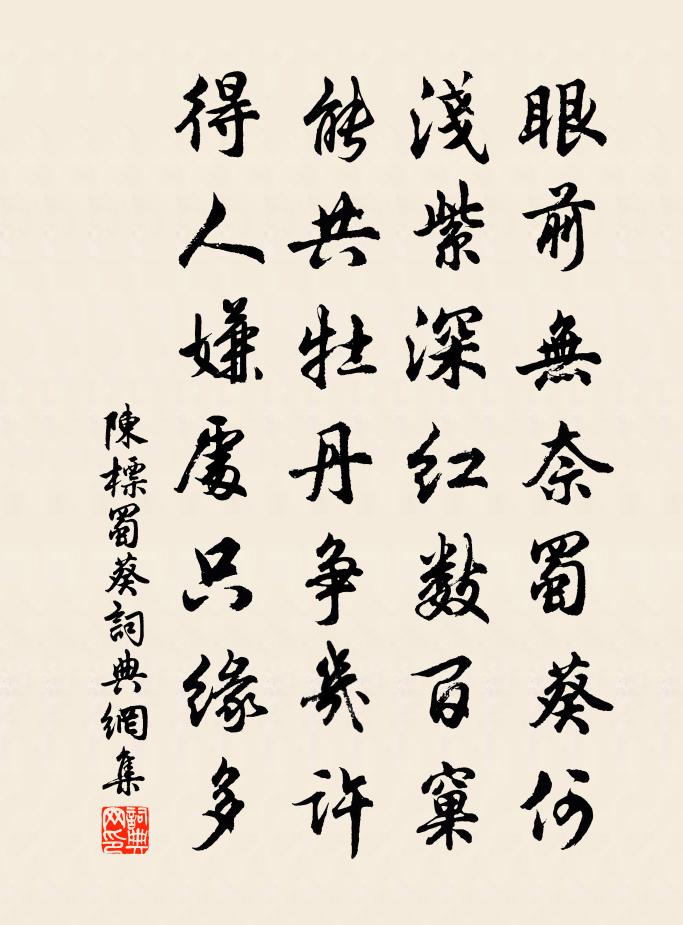 眼前無奈蜀葵何
淺紫深紅數百窠
能共牡丹爭幾許
得人嫌處只緣多
陳標蜀葵詞典網集
詞典網印